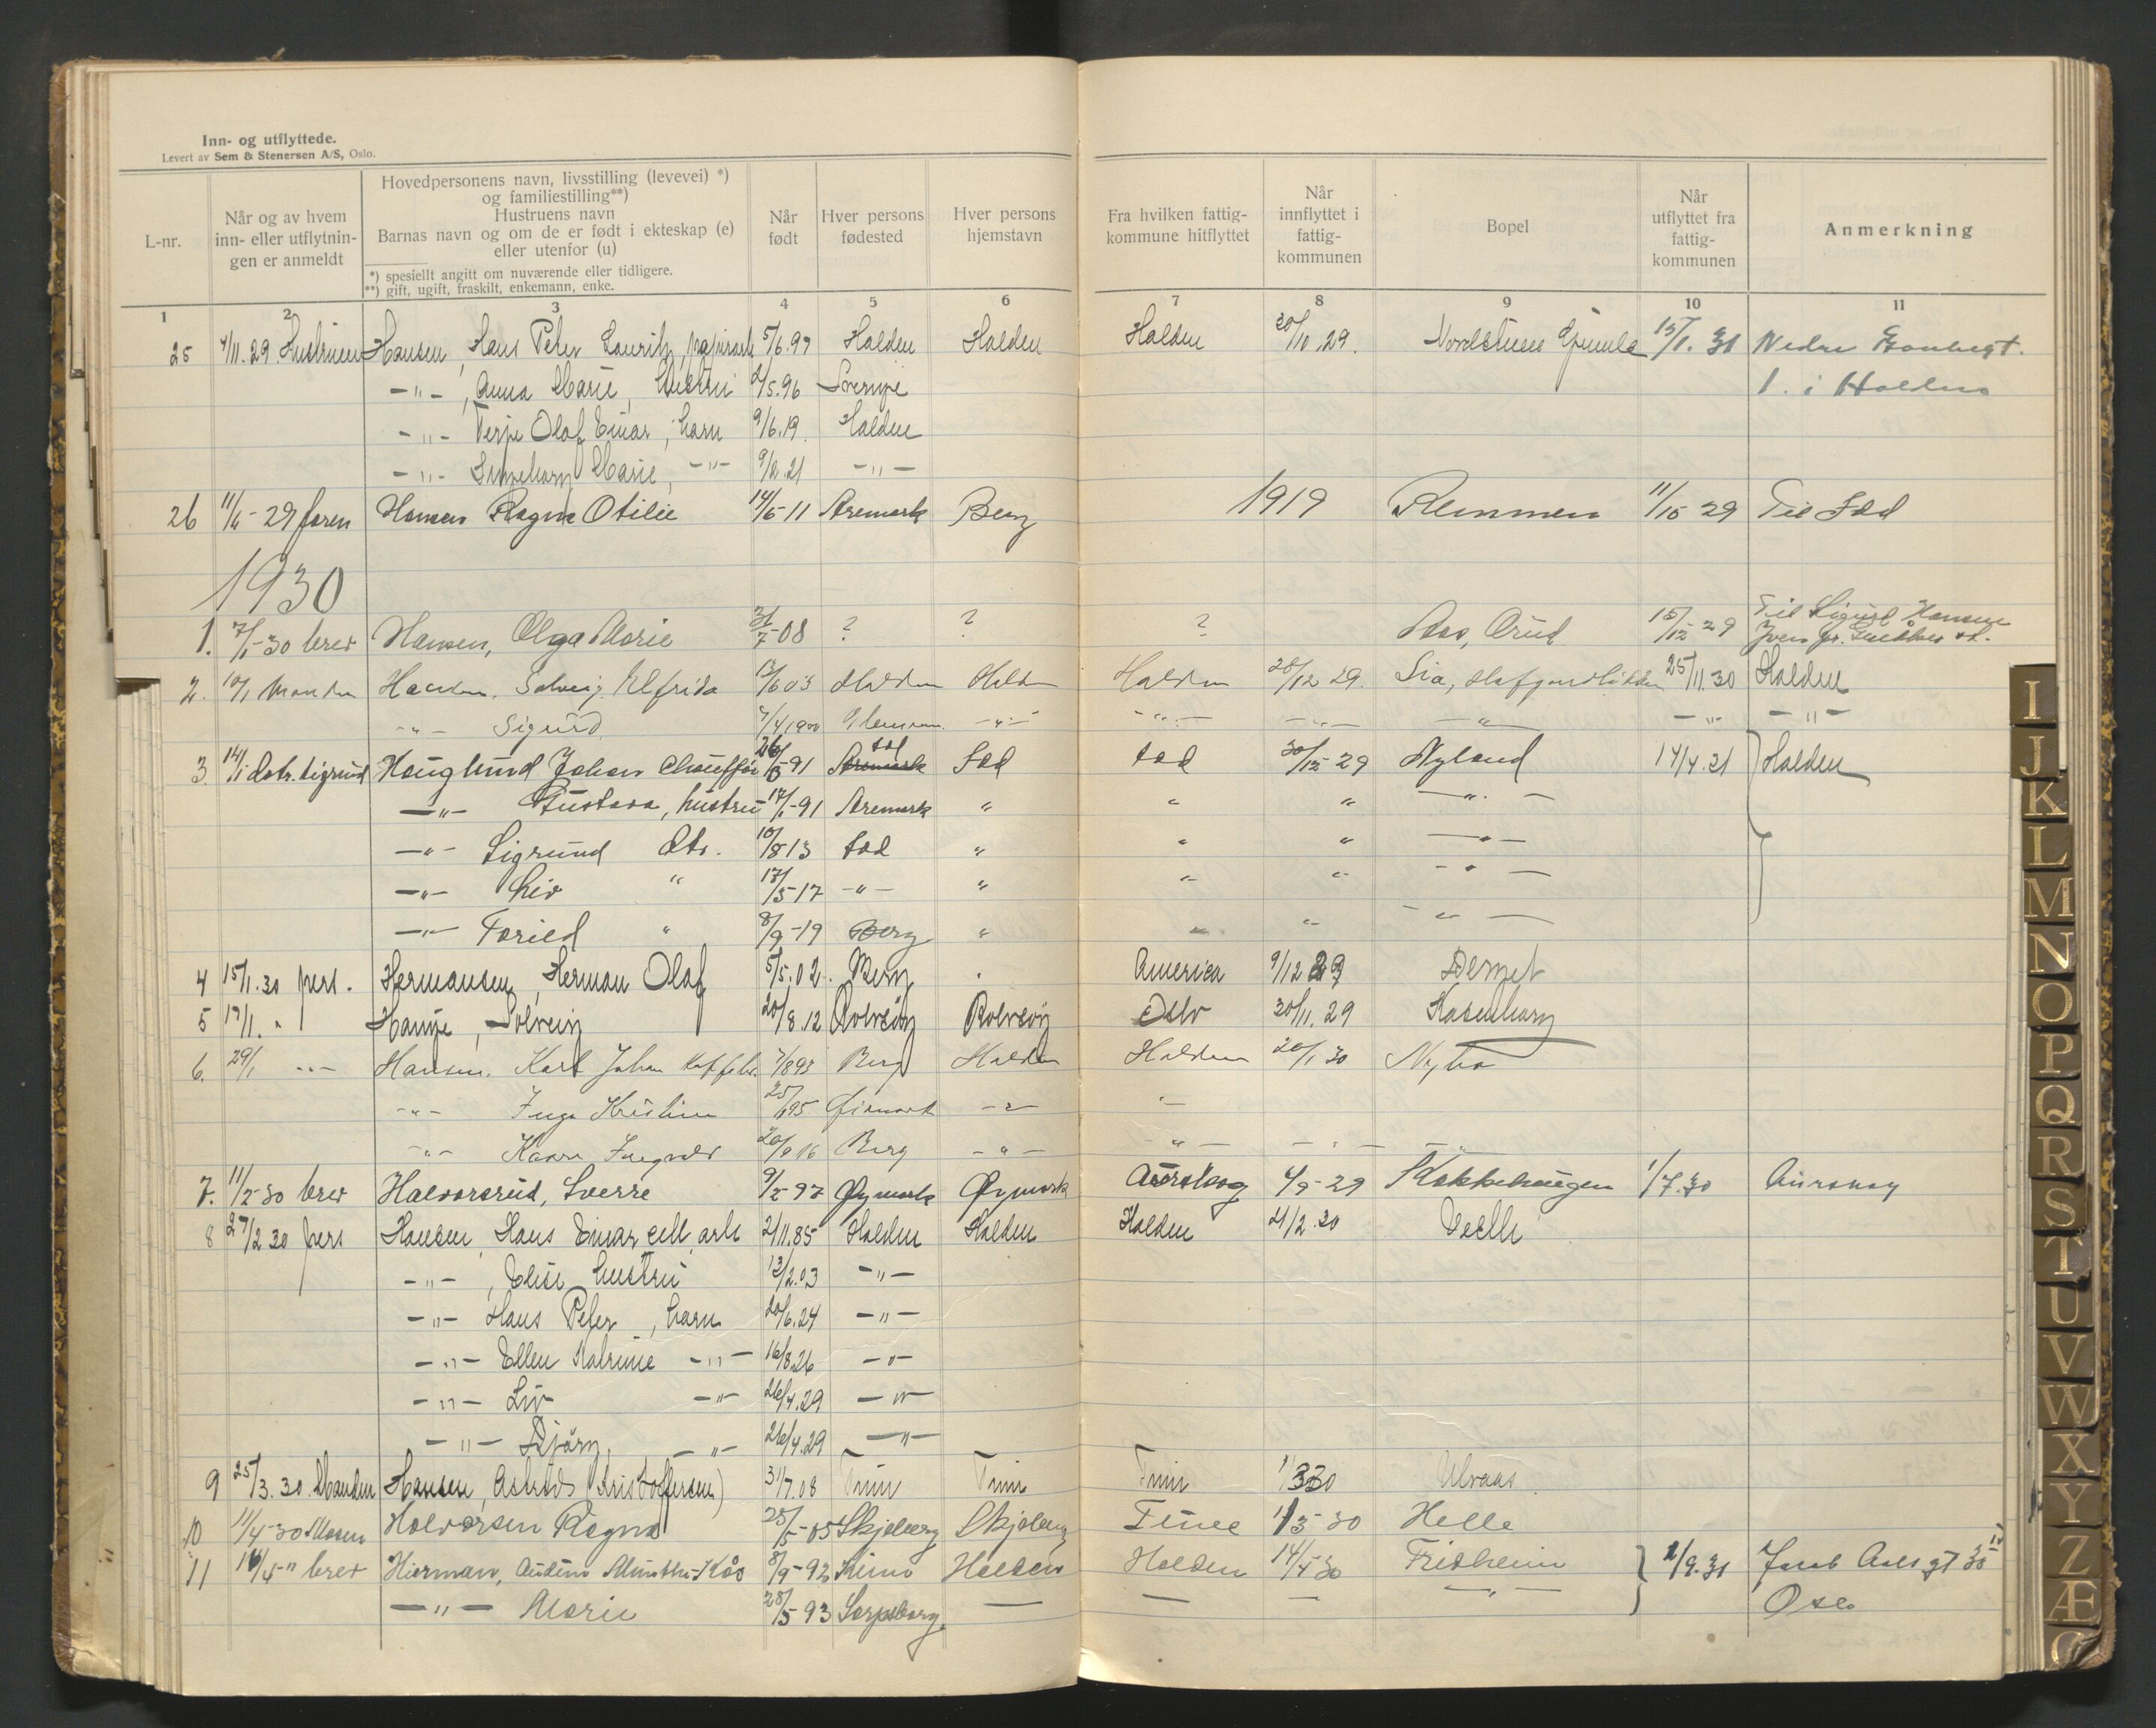 Inn- og utflyttede.
Levert av Sem & Stenersen A/S, Oslo.
L-nr.
Når og av hvem
inn- eller utflytnin-
gen er anmeldt
Hovedpersonens navn, livsstilling (levevei) *)
og familiestilling**)
Hustruens navn
Barnas navn og om de er født i ekteskap (e)
eller utenfor (u)
*) spesiellt angitt om nuværende eller tidligere.
**) gift, ugift, fraskilt, enkemann, enke.
Når
født
Hver persons
fødested
Hver persons
hjemstavn
Fra hvilken fattig-
kommune hitflyttet
Når
innflyttet i
fattig-
kommunen
Bopel
Når
utflyttet fra
fattig-
kommunen
Anmerkning
1 2 3 4 5 6 7 8 9 10 11
25 4/11.29. Hustruen Hansen, Hans Peter Lauritz, 5/6.97 Halden Halden Halden 30/10.29. 15/1.31 Nedre
-"-, Anna Marie, Hustru 2/5.96 Sverige 1. i Halden
-"- Terje Olaf Einar, barn 9/6.19. Halden
-"- Ingeborg Marie, -"- 9/2.21 -"-
26 11/11-29 faren Hansen Ragna Otilie 14/5-11 Aremark Berg 1919 Remmen 11/10 29 Til Idd
1930
1. 7/1-30 brev Hansen, Olga Marie 31/7-08 ? ? ? 15/12-29 Til Sigurd Hansen
2. 10/1 Manden Hansen, Solveig Elfrida 13/6 03 Halden Halden Halden 28/12 29. Lia, 25/11.30 Halden
-"- Sigurd 7/4 1900 -"- -"- -"- -"- -"- -"-
3 14/1 datr. Sigrund Hauglund Johan Chauffør 26/5-91 Aremark Idd Idd Idd 30/12-29 Nyland 14/4.31 Halden
-"- Gustava, hustru 17/1-91 Aremark " " " -"-
-"- Sigrund Dtr. 10/8 13 Idd " " " -"-
-"- Liv " 17/5-17 -"- " " " -"-
-"- Torild " 8/9-19 Berg " " " -"-
4 15/1.30 pers. Hermansen, Herman Olaf 5/5.02. Berg " America 9/12 29
5 17/1. " Hauge, Solveig 20/8.12 Rolvsøy Rolvsøy Oslo 30/11.29 Rosenborg
6. 29/1 -"- Hansen. Karl Johan 7/8 93 Berg Halden Halden 20/1 30 Nybo
-"- Inga Kristine -"- "
-"- Kaare Ingvald Berg -"- -"- -"-
7. 11/2-30 brev Halvorsrud, Sverre 9/2-97 Øymark Øymark Aurskog 4/9-29 Kokkehaugen 1/7.30 Aurskog
8 27/2 30 pers Hansen, Hans Einar cell.arb 2/11.85 Halden Halden Halden 21/2.30
-"-, Elise hustru 13/2.03 -"-
-"- Hans Peter, barn 20/6.24 -"-
-"- Ellen Katrine -"- 16/8.26 -"-
-"- Liv -"- 26/4.29 -"-
-"- Björn -"- 26/4.29 -"-
9 25/3.30. Manden Hansen, Astrid (Kristoffersen) 31/7.08 Tune Tune Tune 1/3 30 Ulvaas
10 11/4-30 Halvorsen Ragna 25/5-05 Skjeberg Skjeberg Tune 1/3-30 Helle
11 16/4-" brev Hierman, 8/9-92 Halden Halden 14/4 30 Fridheim 2/9.31 Jacob Aalls gt 30
-"- Marie 28/5 93 Sarpsborg — — — -"- Oslo
I
J
K
L
M
N
O
P
Q
R
S
T
U
V
W
X
Y
Z
Æ